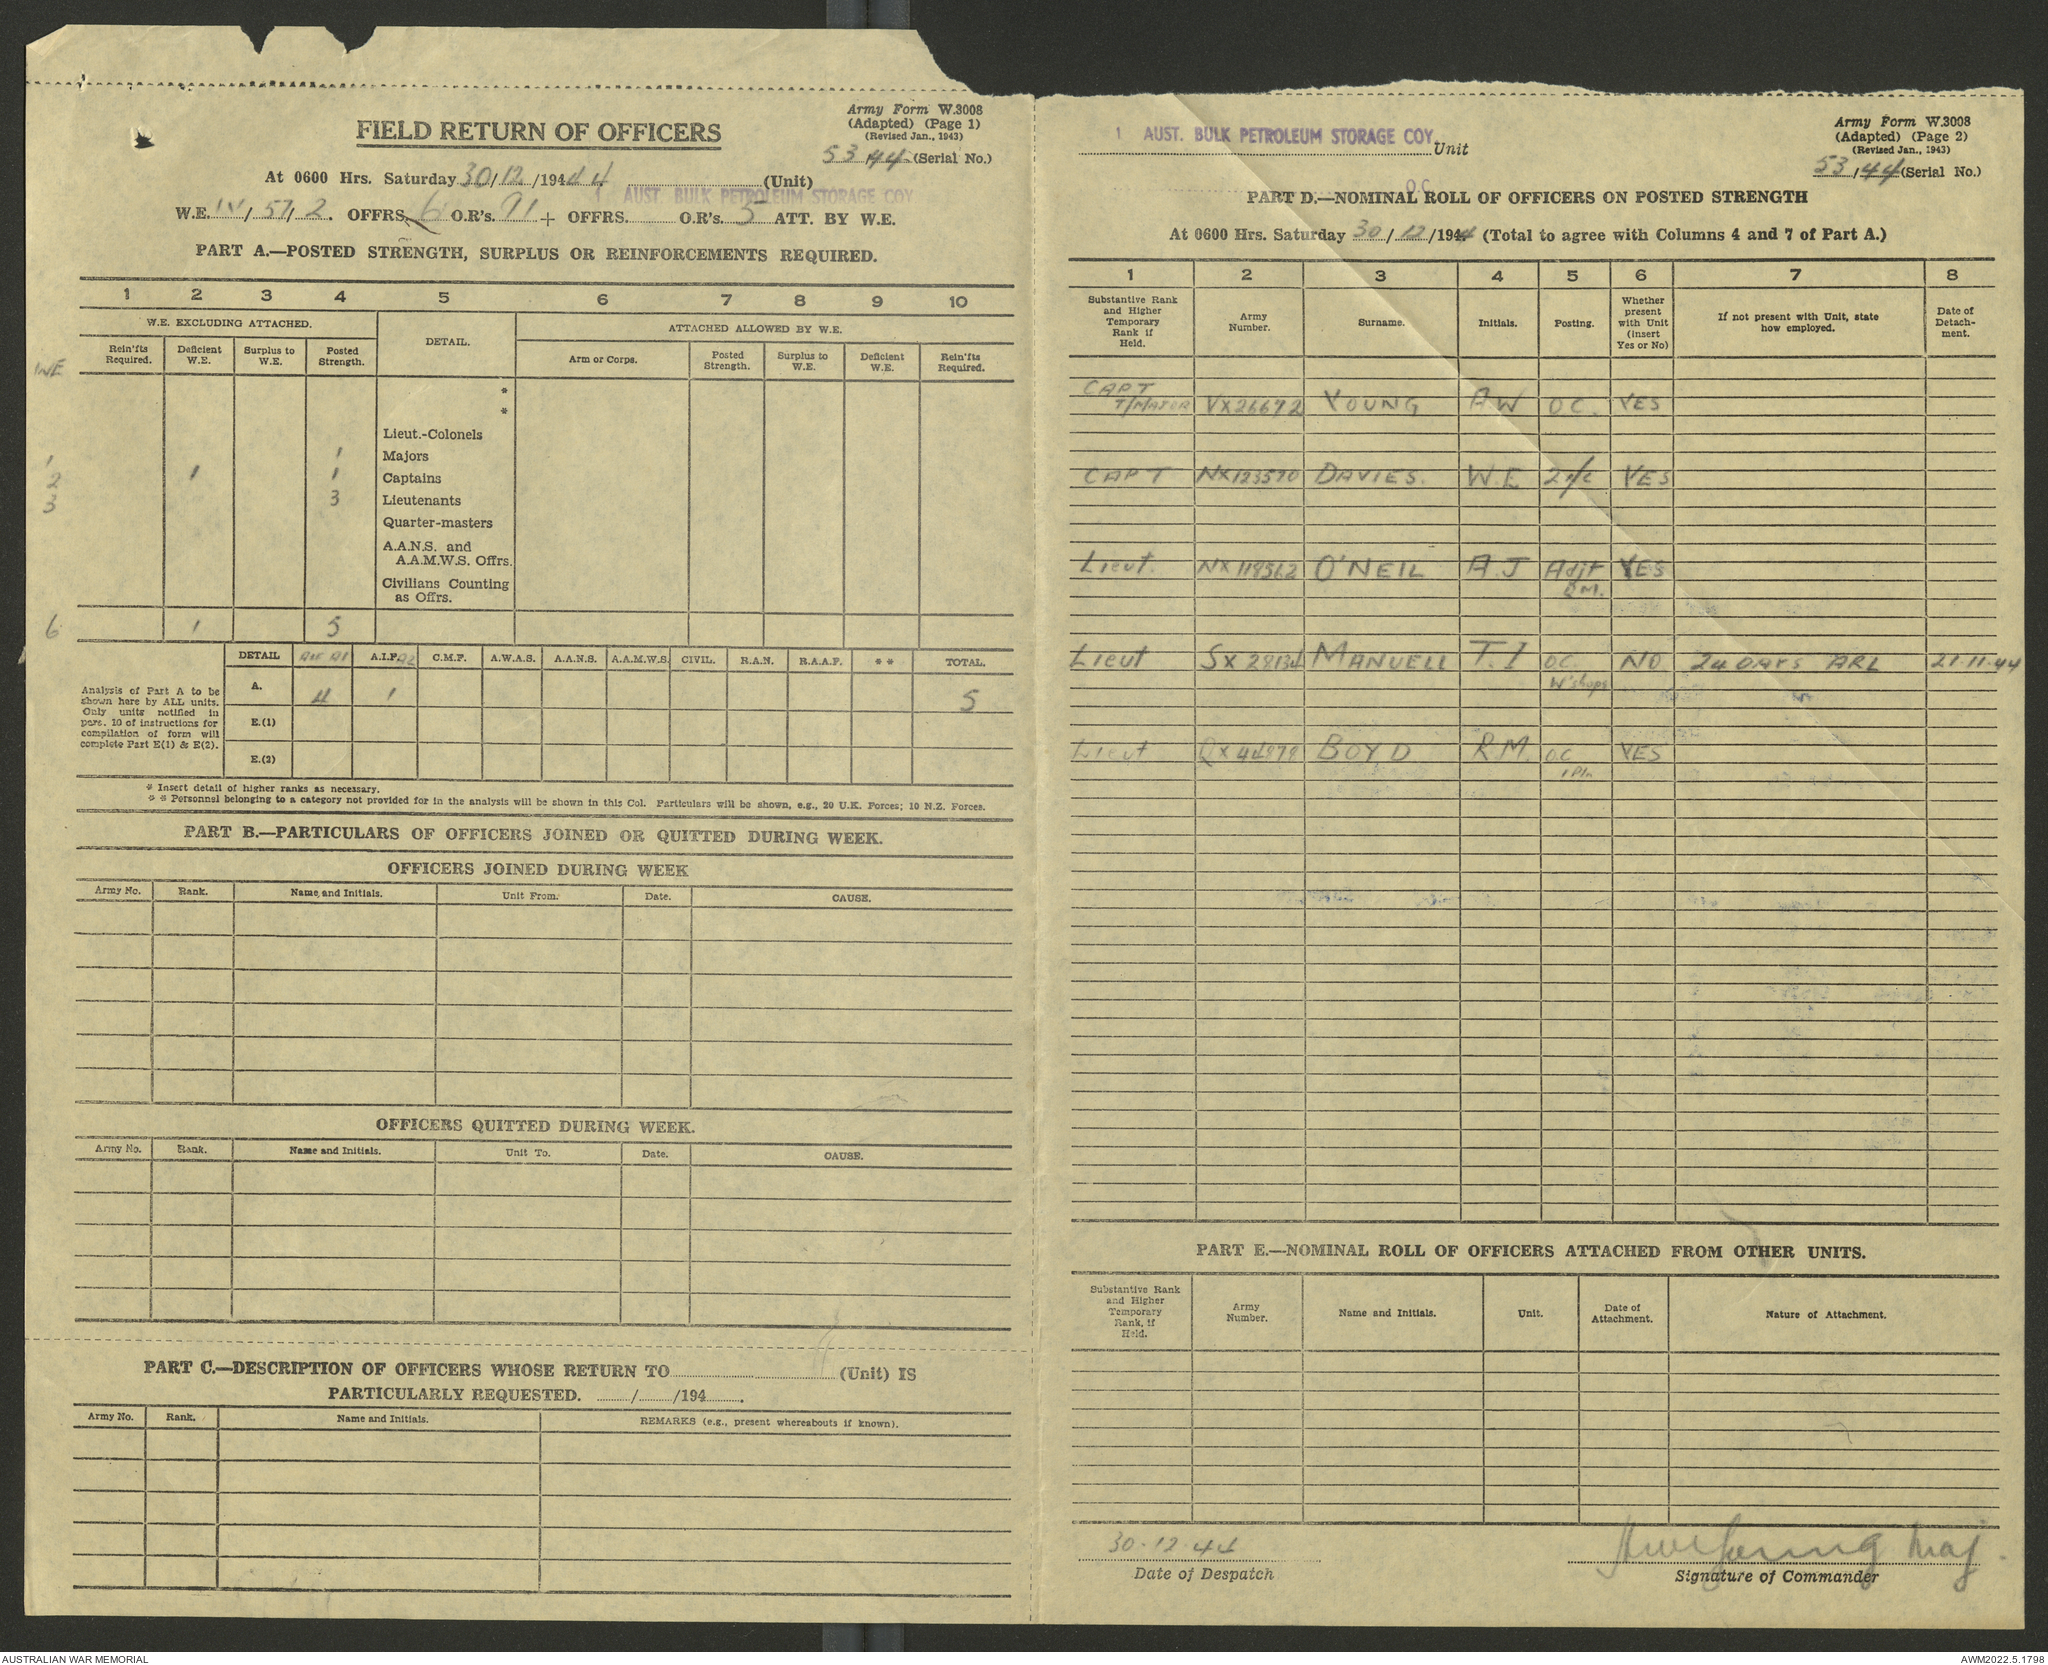 Army Form W.3008
(Adapted) (Page 1)
(Revised Jan., 1943)
FIELD RETURN OF OFFICERS
53/44 (Serial No.)
At 0600 Hrs. Saturday 30/12/1944 (Unit)
1 AUST. BULK PETROLEUM STORAGE COY
W.E. IV/57/2. OFFRS. 6 O.R's. 91 + OFFRS. O.R's. 5 ATT. BY W.E.
PART A.—POSTED STRENGTH, SURPLUS OR REINFORCEMENTS REQUIRED.
1 2 3 4 5 6 7 8 9 10
W.E. EXCLUDING ATTACHED. DETAIL. ATTACHED ALLOWED BY W.E.
Rein'fts Required. Deficient W.E. Surplus to W.E. Posted Strength. Arm or Corps. Posted Strength. Surplus to W.E. Deficient W.E. Rein'fts Required.
WE
*
*
Lieut.-Colonels
1 1 Majors
2 1 1 Captains
3 3 Lieutenants
Quarter-masters
A.A.N.S. and
A.A.M.W.S. Offrs.
Civilians Counting
as Offrs.
6 1 5
DETAIL A.I.F. A2 C.M.F. A.W.A.S. A.A.N.S. A.A.M.W.S. CIVIL. R.A.N. R.A.A.F. ** TOTAL.
Analysis of Part A to be
shown here by ALL units.
Only units notified in
para. 10 of instructions for
compilation of form will
complete Part E(1) & E(2).
A. 4 1 5
E.(1)
E.(2)
* Insert detail of higher ranks as necessary.
** Personnel belonging to a category not provided for in the analysis will be shown in this Col. Particulars will be shown, e.g., 20 U.K. Forces; 10 N.Z. Forces.
PART B.—PARTICULARS OF OFFICERS JOINED OR QUITTED DURING WEEK.
OFFICERS JOINED DURING WEEK
Army No. Rank. Name and Initials. Unit From. Date. CAUSE.
OFFICERS QUITTED DURING WEEK.
Army No. Rank. Name and Initials. Unit To. Date. CAUSE.
PART C.—DESCRIPTION OF OFFICERS WHOSE RETURN TO (Unit) IS
PARTICULARLY REQUESTED. / /194 .
Army No. Rank. Name and Initials. REMARKS (e.g., present whereabouts if known).
Army Form W.3008
(Adapted) (Page 2)
(Revised Jan., 1943)
1 AUST. BULK PETROLEUM STORAGE COY. Unit
53/44 (Serial No.)
O.C.
PART D.—NOMINAL ROLL OF OFFICERS ON POSTED STRENGTH
At 0600 Hrs. Saturday 30/12/1944 (Total to agree with Columns 4 and 7 of Part A.)
1 2 3 4 5 6 7 8
Substantive Rank and Higher Temporary Rank if Held. Army Number. Surname. Initials. Posting. Whether present with Unit (insert Yes or No) If not present with Unit, state how employed. Date of Detach-ment.
CAPT
T/MAJOR VX26672 YOUNG AW O.C. YES
CAPT NX123570 DAVIES. W.E 2i/c YES
Lieut. NX118562 O'NEIL A.J Adjt YES
QM.
Lieut SX28134 MANUELL T.I O.C. NO 24 DAYS ARL 21.11.44
W'shops
Lieut QX44878 BOYD R.M. O.C YES
1 Pln
PART E.—NOMINAL ROLL OF OFFICERS ATTACHED FROM OTHER UNITS.
Substantive Rank and Higher Temporary Rank, if Held. Army Number. Name and Initials. Unit. Date of Attachment. Nature of Attachment.
30.12.44 Young Maj.
Date of Despatch Signature of Commander
AUSTRALIAN WAR MEMORIAL AWM2022.5.1798